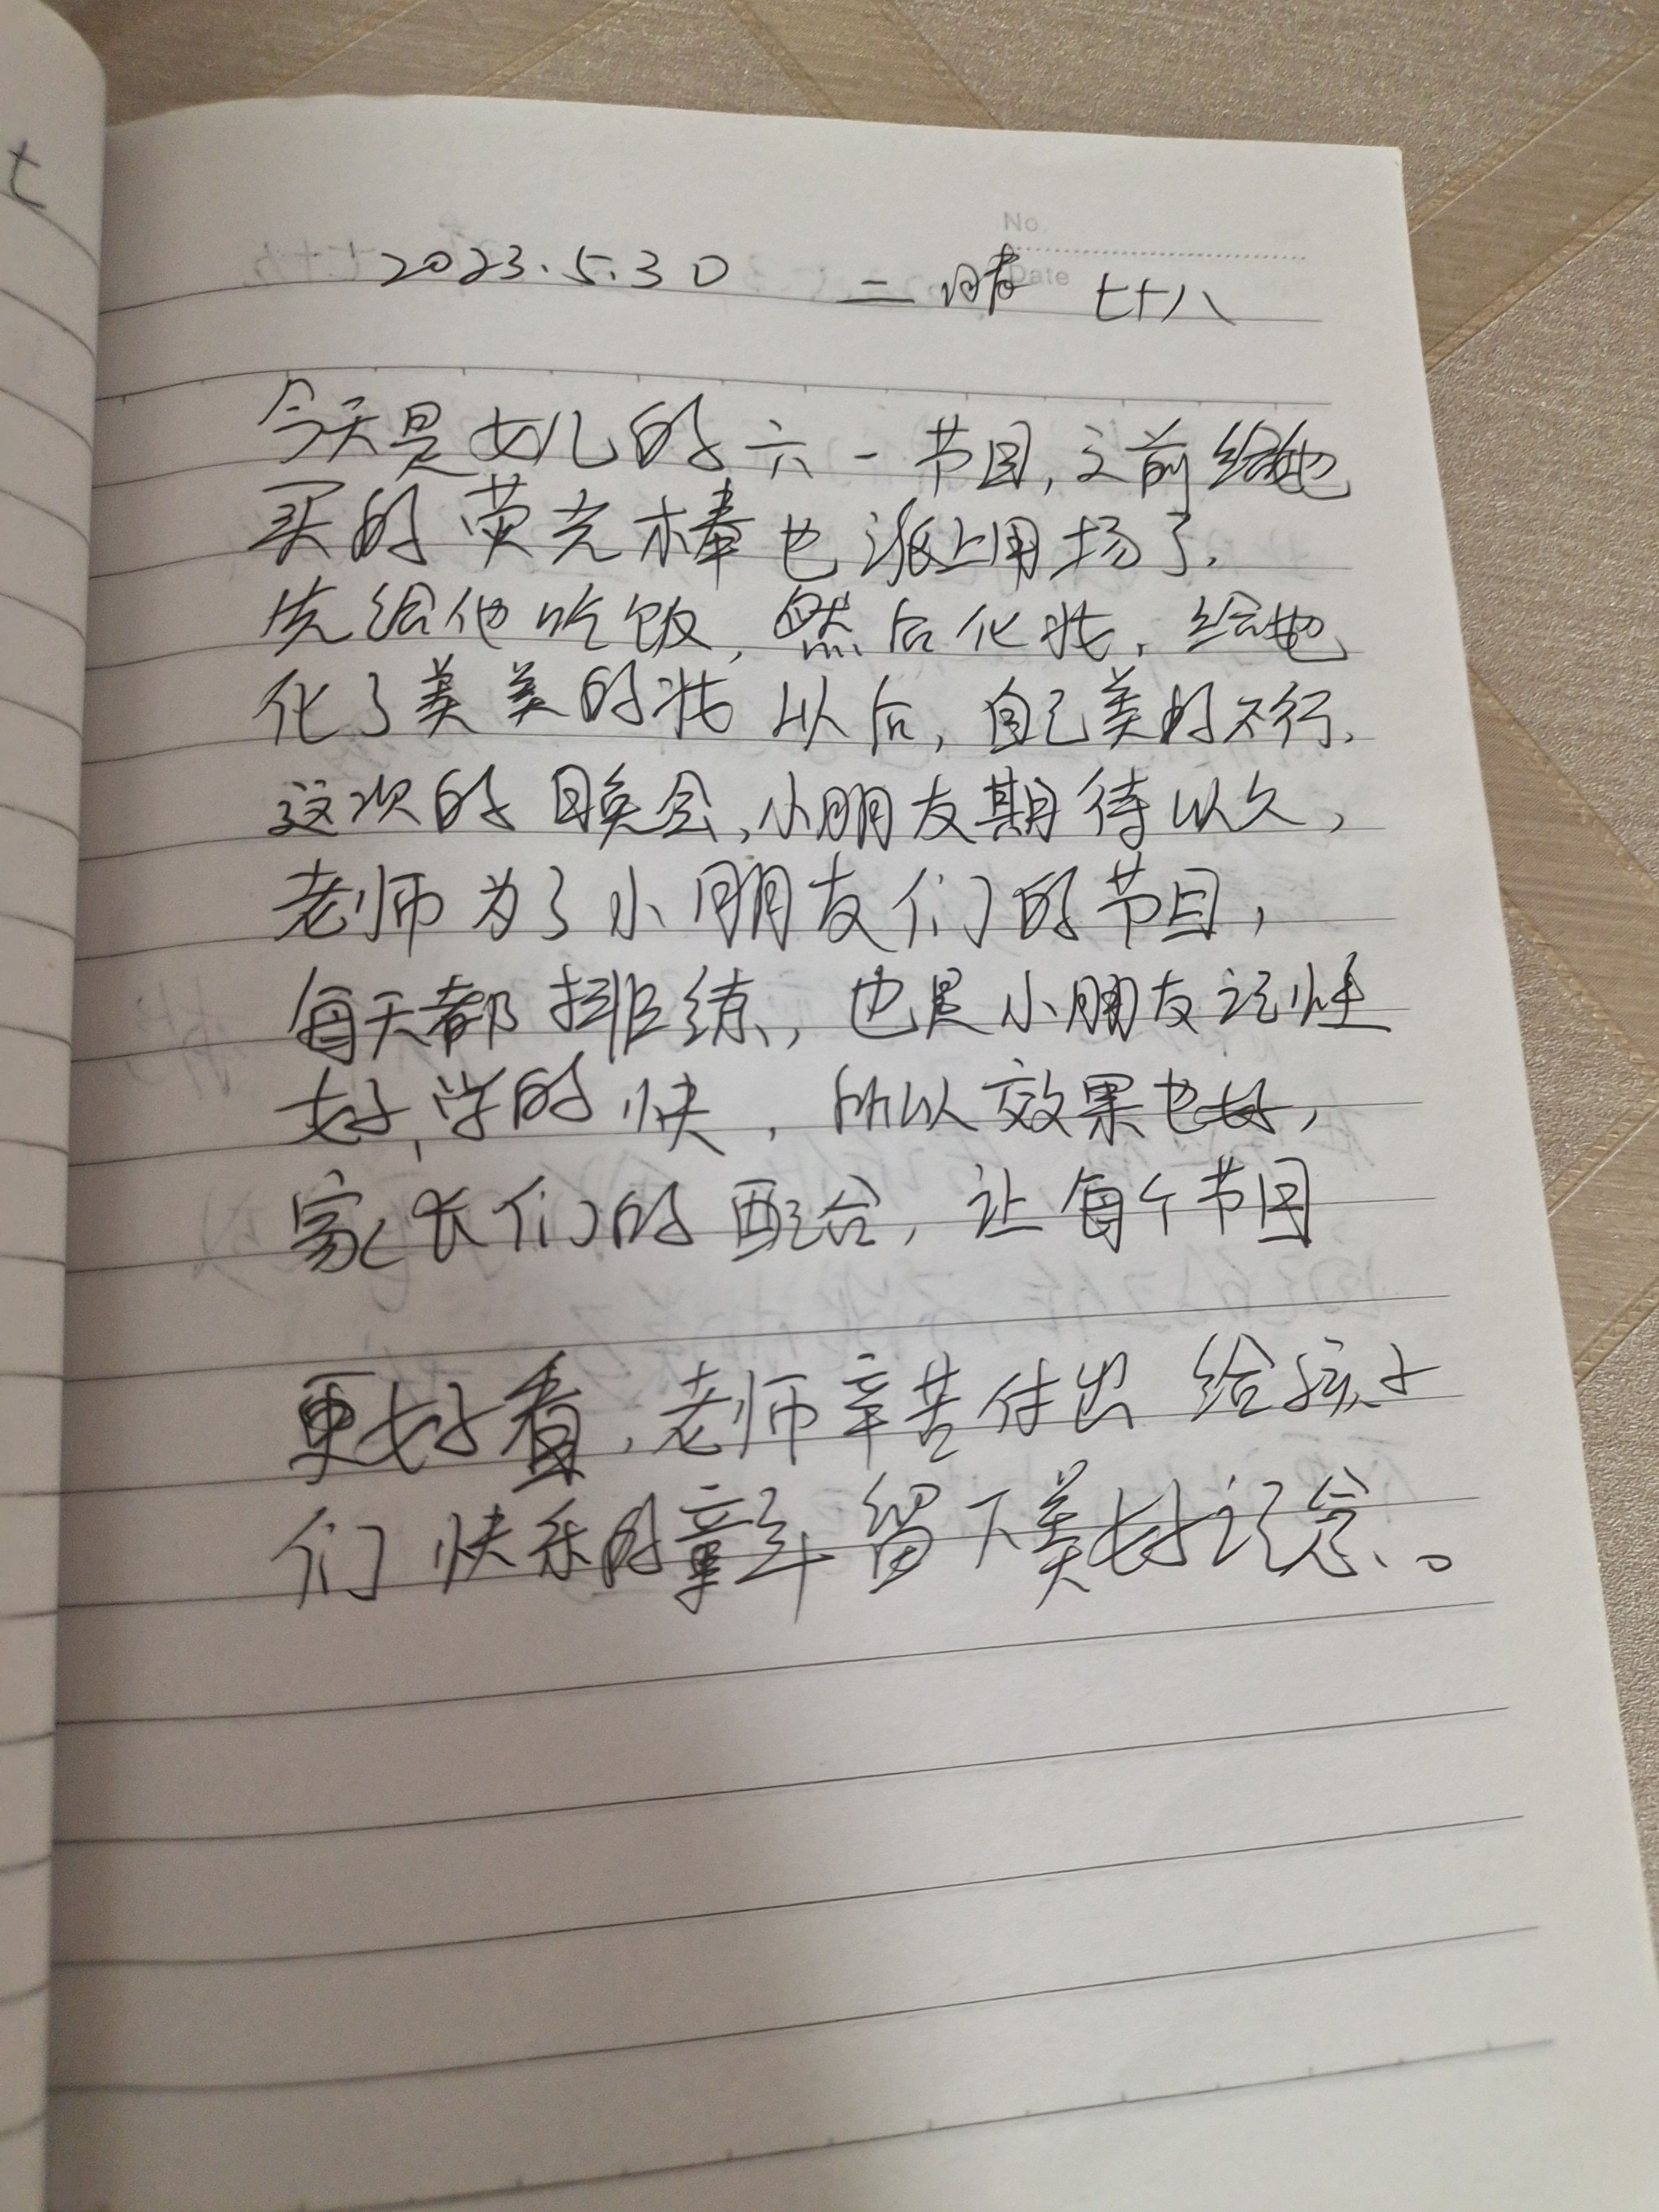 七
No
Date
2023.5.30 二 晴 七十八
今天是女儿的六一节目,之前给她
买的荧光棒也派上用场了.
先给他吃饭,然后化妆.给她
化了美美的妆以后,自己美的不行.
这次的晚会,小朋友期待以久,
老师为了小朋友们的节目,
每天都排练,也是小朋友记性
好,学的快,所以效果也好,
家长们的配合,让每个节目
更好看,老师辛苦付出 给孩子
们快乐的童年留下美好记念.。